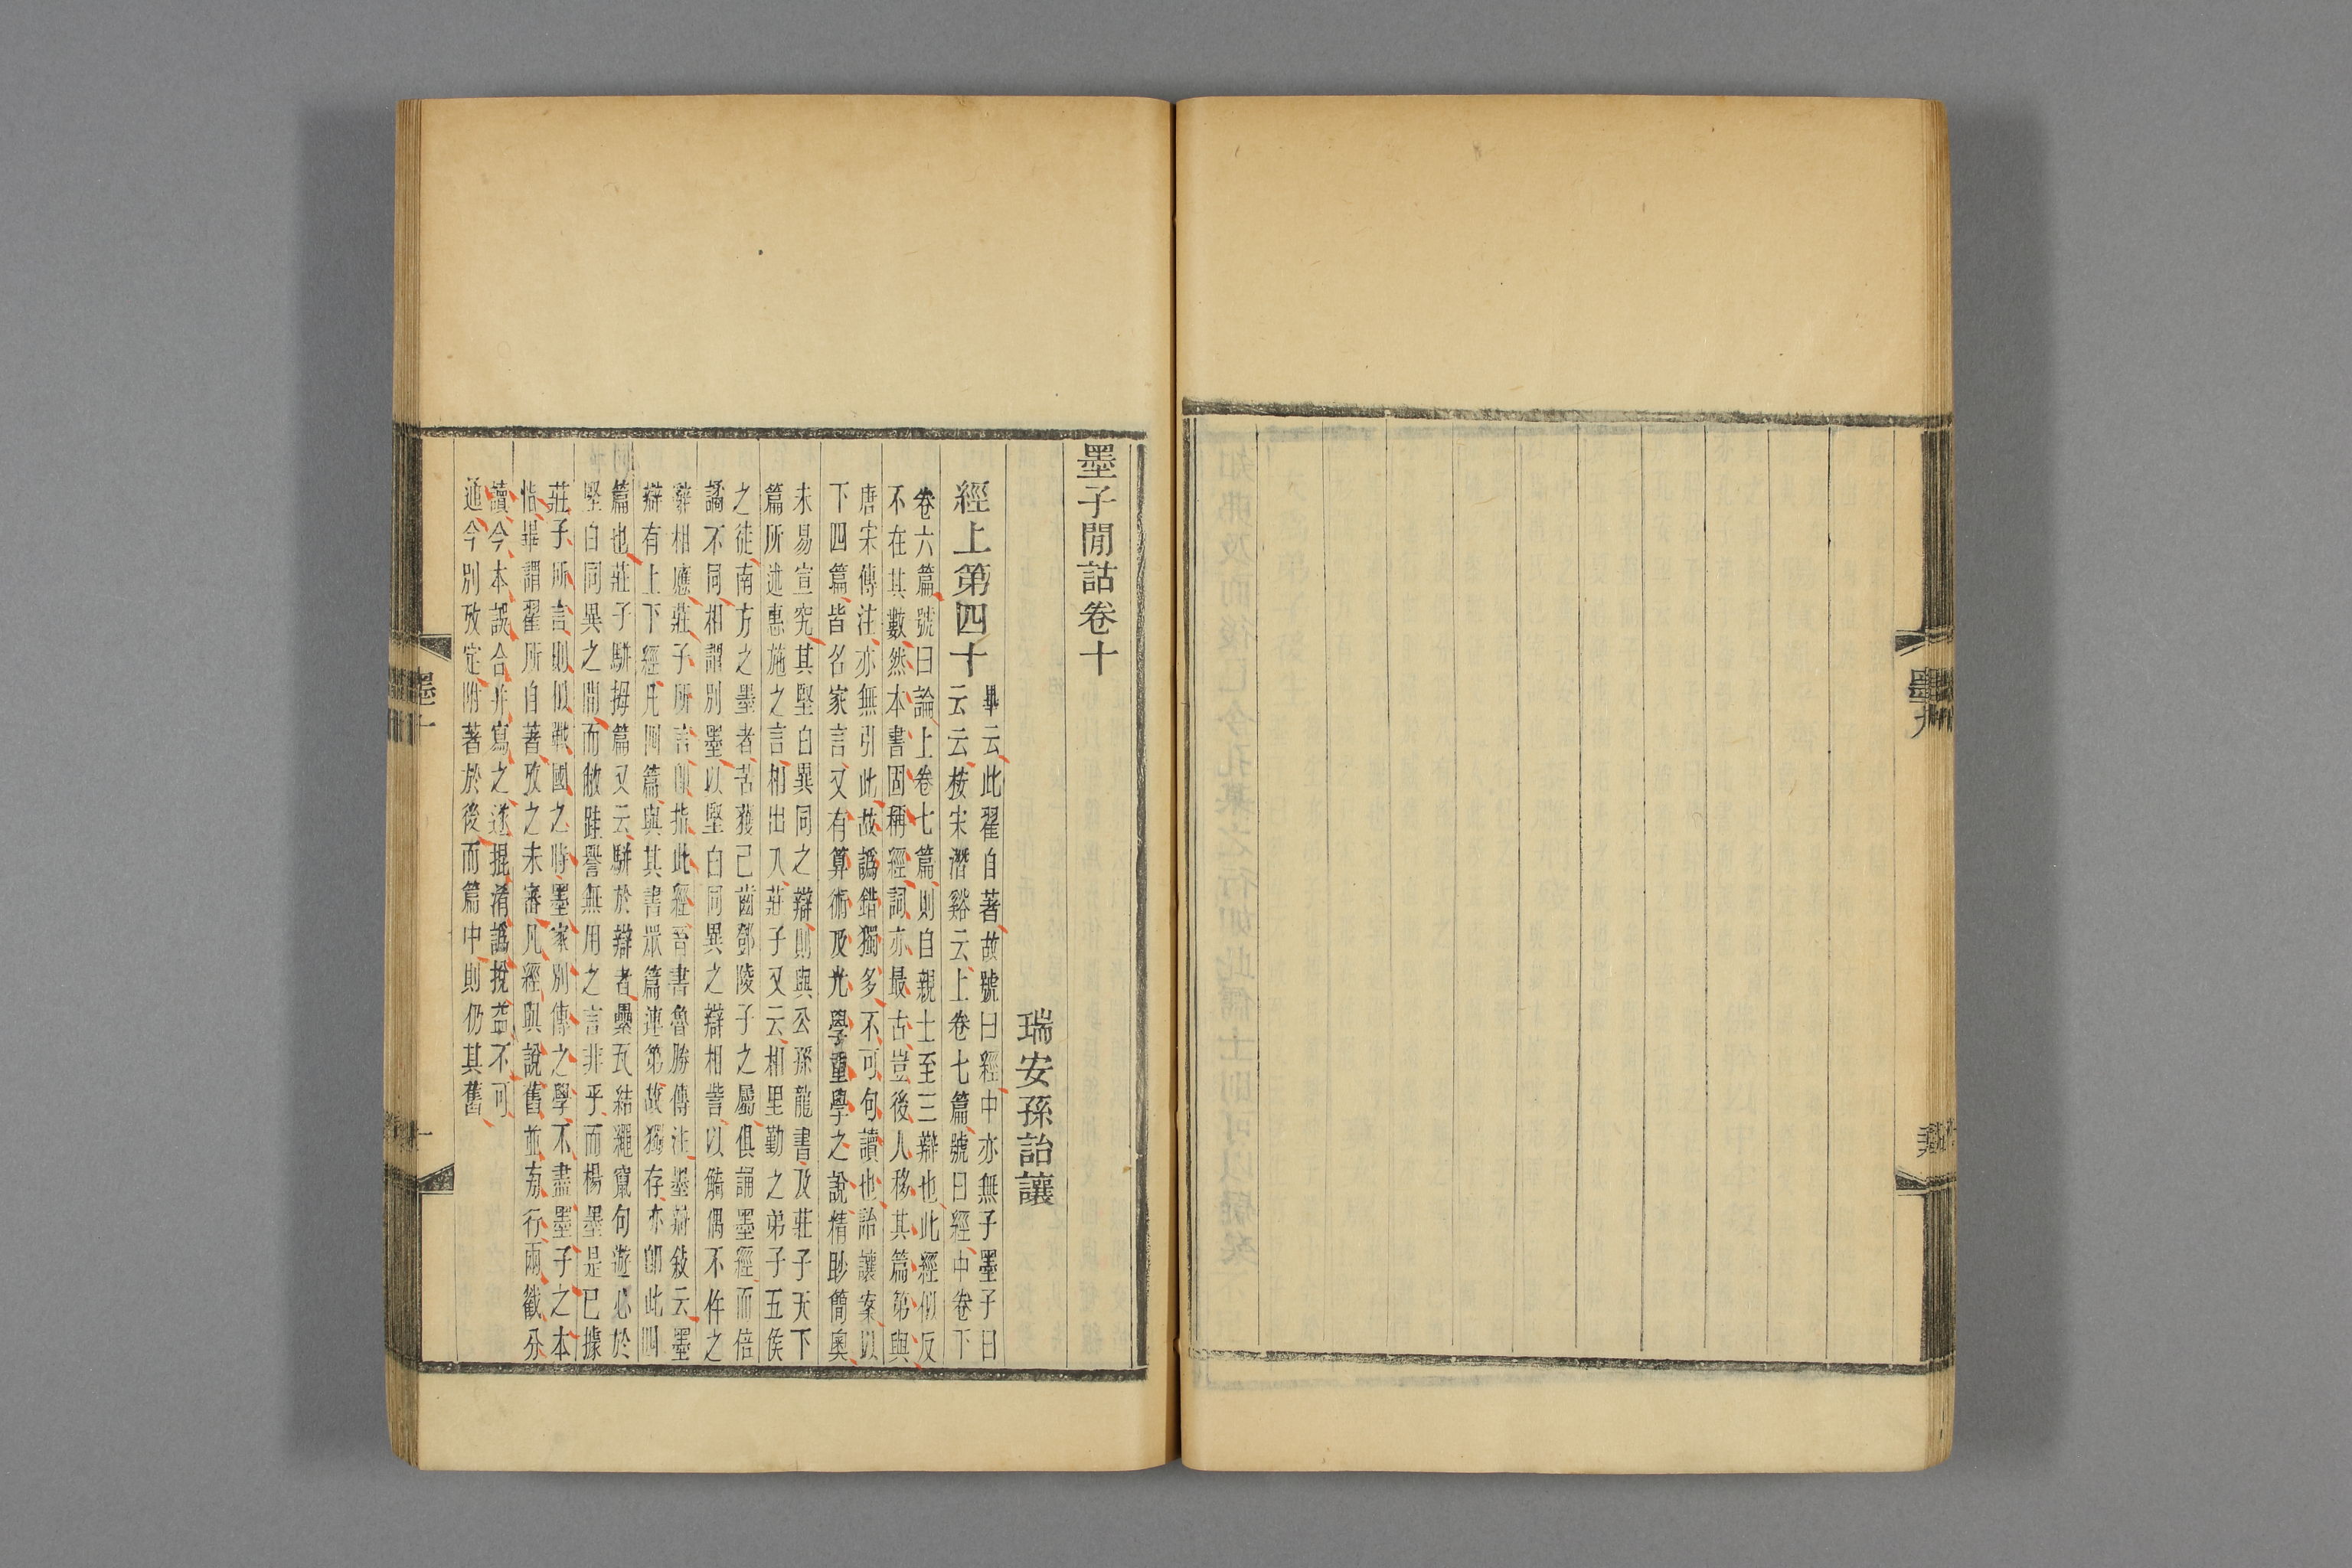 墨子閒詁卷十
瑞安孫詒讓
經上第四十
畢云此翟自著故號曰經中亦無子墨子曰
云云桉宋濳谿云上卷七篇號曰經中卷下
卷六篇號曰論上卷七篇則自親士至三辯也此經似反
不在其數然本書固稱經詞亦最古豈後人移其篇第與
唐宋傳注亦無引此故譌錯獨多不可句讀也詒讓案以
下四篇皆名家言又有算術及光學重學之說精眇簡奧
未易宣究其堅白異同之辯則與公孫龍書及莊子天下
篇所述惠施之言相出入莊子又云相里勤之弟子五侯
之徒南方之墨者苦獲已齒鄧陵子之屬俱誦墨經而倍
譎不同相謂別墨以堅白同異之辯相訾以觭偶不仵之
辭相應莊子所言卽指此經晉書魯勝傳注墨辯敍云墨
辯有上下經經各有說凡四篇與其書眾篇連第故獨存亦卽此四
篇也莊子駢拇篇又云駢於辯者纍瓦結繩竄句遊心於
堅白同異之閒而敝跬譽無用之言非乎而楊墨是已據
莊子所言則似戰國之時墨家別傳之學不盡墨子之本
恉畢謂翟所自著攷之未審凡經與說舊並㫄行兩𢧵分
讀今本誤合并寫之遂掍淆譌挩益不可
通今別攷定附著於後而篇中則仍其舊
墨十
一
墨九